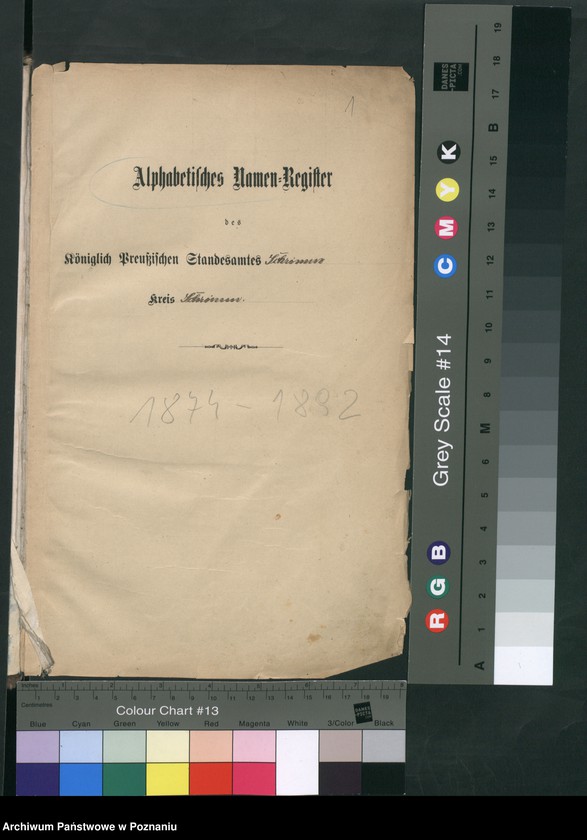 1
Alphabetisches Namen=Register
des
Königlich Preußischen Standesamtes Schrimm
Kreis Schrimm.
1874 - 1892
DANES
-PICTA
.COM
A 1 2 3 4 5 6 M 8 9 10 11 12 13 14 15 B 17 18 19
R G B
Grey Scale #14
C M Y K
Inches
Centimetres
Colour Chart #13
Blue Cyan Green Yellow Red Magenta White 3/Color Black
Archiwum Państwowe w Poznaniu